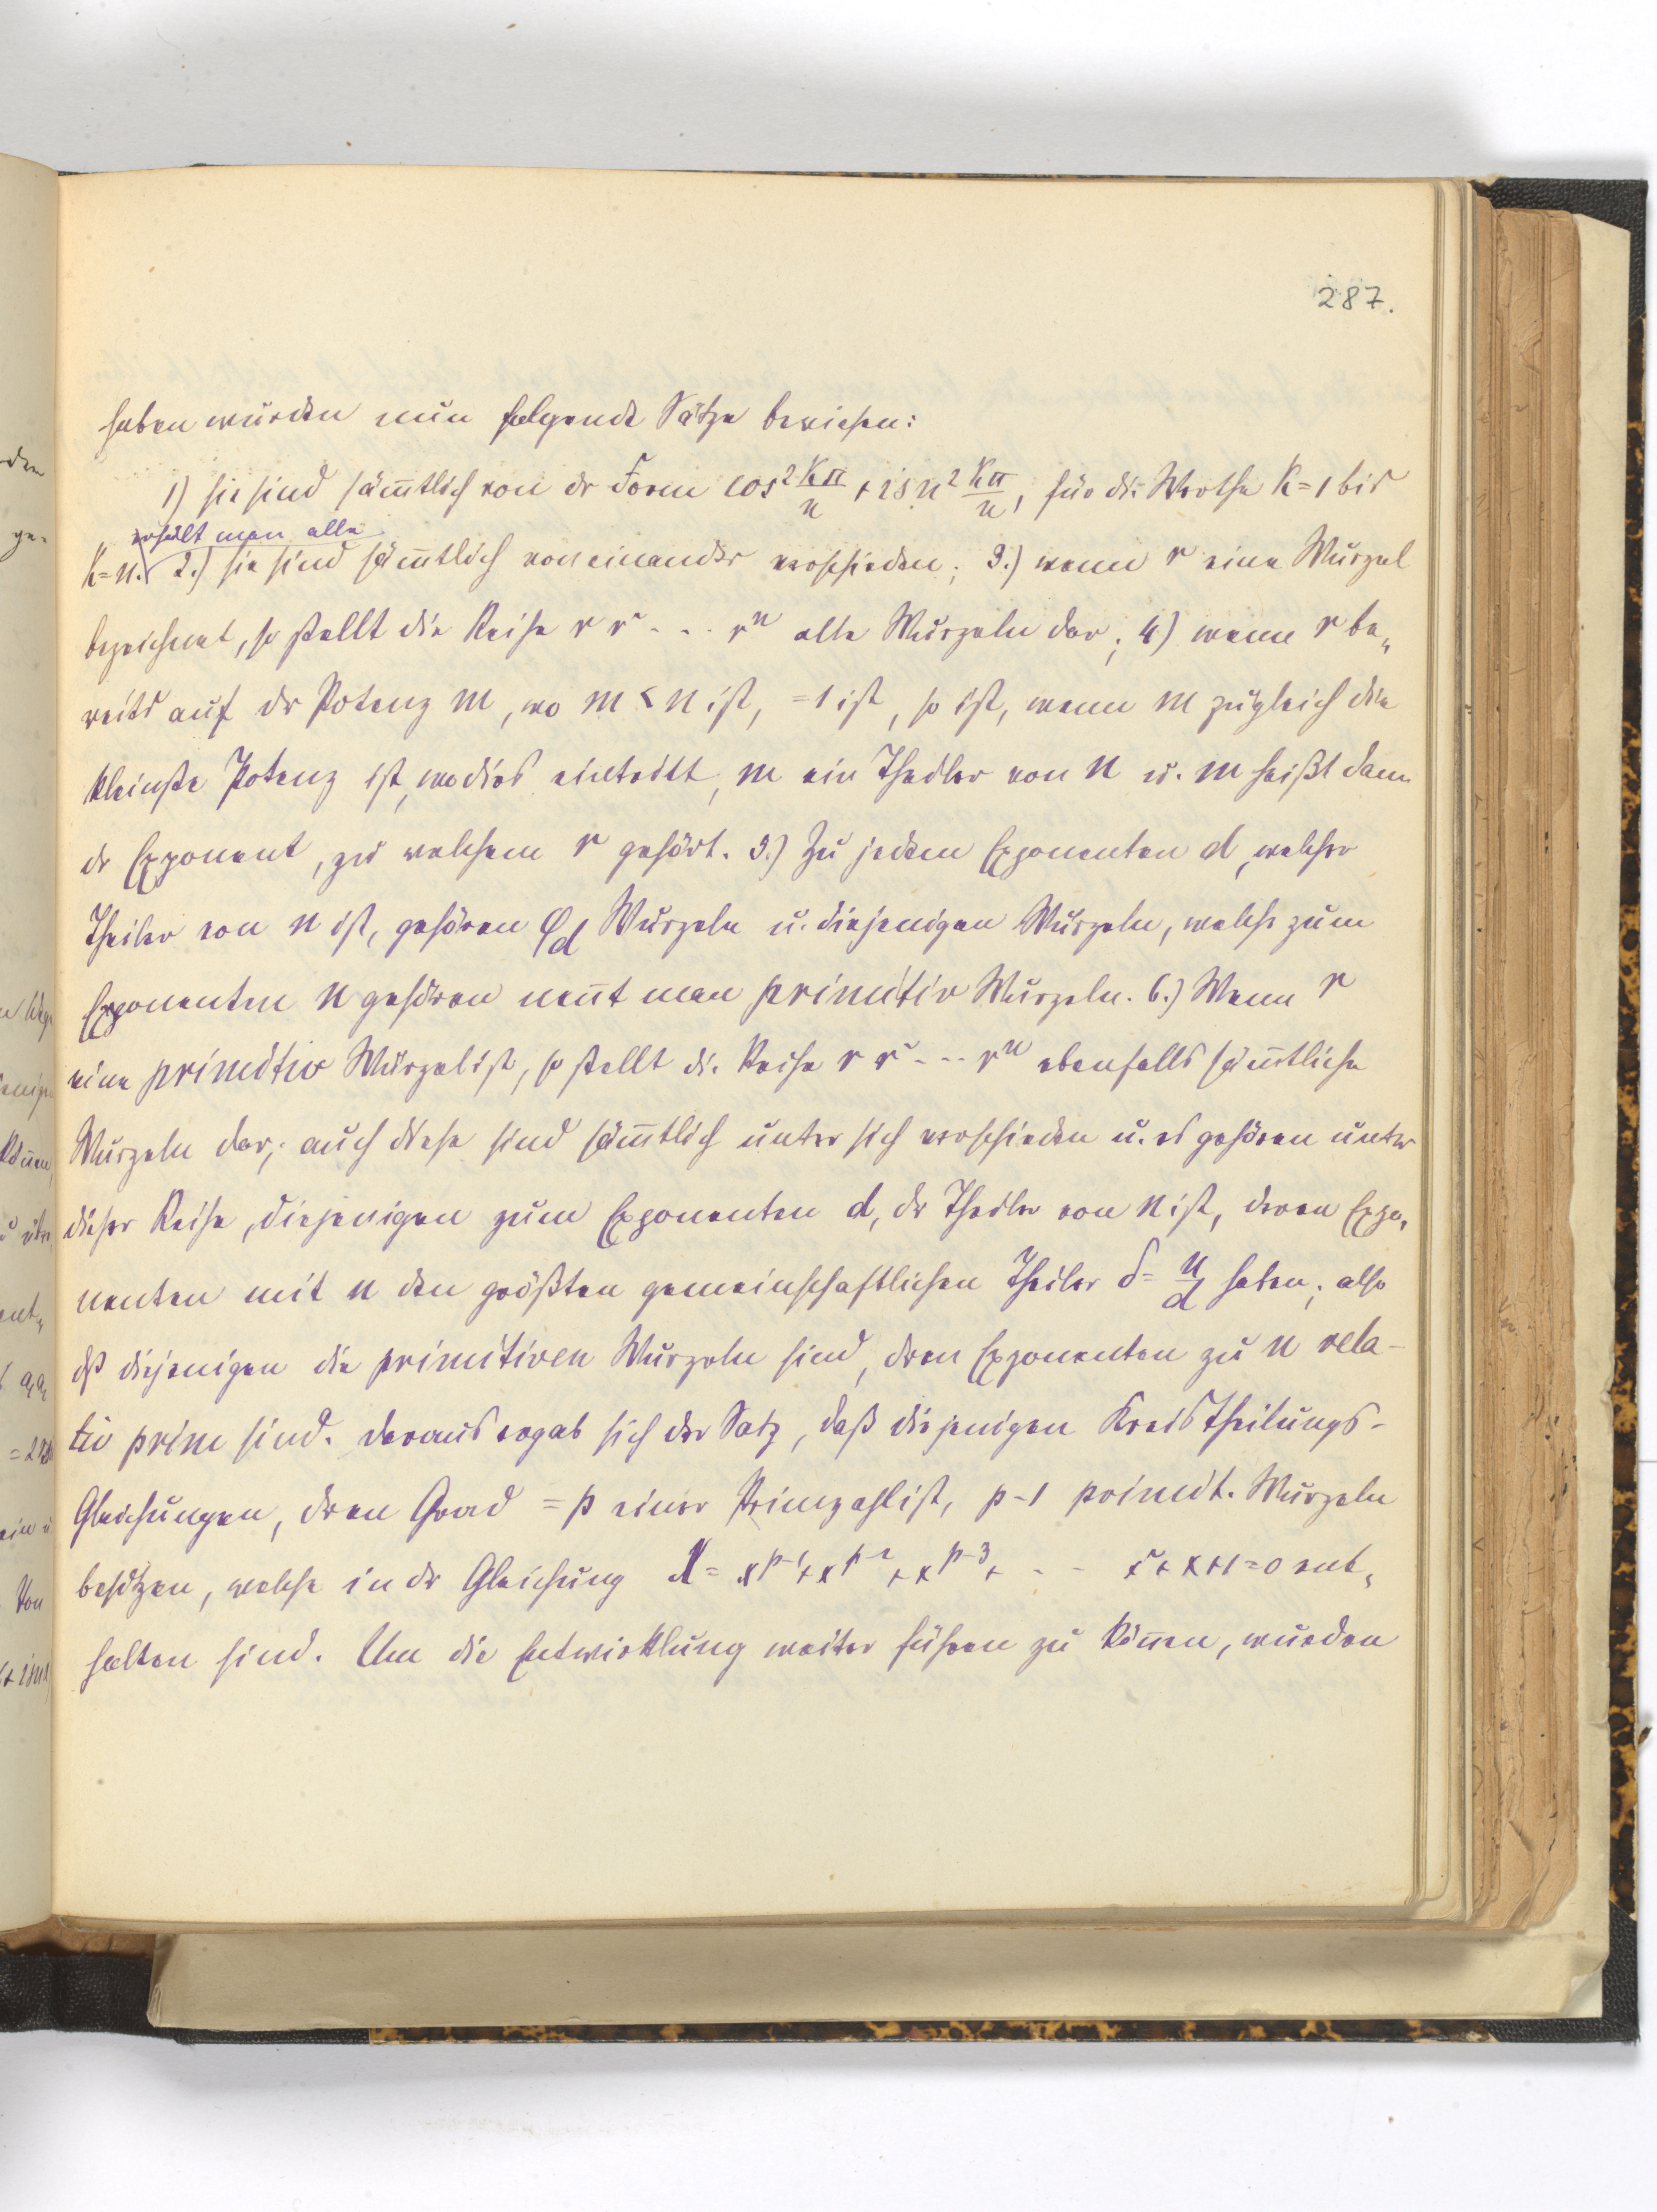 287.
haben wurden nun folgende Sätze bewiesen:
1) sie sind säm̅tlich von dr Form cos 2 Kπ/n + i sn 2 Kπ/n, für die Werthe K = 1 bis
erhält man alle
K = n. 2.) sie sind säm̅tlich von einander verschieden; 3.) wenn r eine Wurzel
bezeichnet, so stellt die Reihe r r² - - - rⁿ alle Wurzeln dar; 4) wenn r be„
reits auf dr Potenz m, wo m < n ist, = 1 ist, so ist, wenn m zugleich die
kleinste Potenz ist, wo dies eintritt, m ein Theiler von n u. m heißt dann
dr Exponent, zu welchem r gehört. 5.) Zu jedem Exponenten d, welcher
Theiler von n ist, gehören φd Wurzeln u. diejenigen Wurzeln, welche zum
Exponenten n gehören nen̅t man primitiv Wurzeln. 6.) Wenn r
eine primitiv Wurzel ist, so stellt die Reihe r r² - - - rⁿ ebenfalls säm̅tliche
Wurzeln dar; auch diese sind säm̅tlich unter sich verschieden u. es gehören unter
dieser Reihe, diejenigen zum Exponenten d, dr Theiler von n ist, deren Expo„
nenten mit n den größten gemeinschaftlichen Theiler δ = n/d haben; also
dß diejenigen die primitiven Wurzeln sind, dren Exponenten zu n rela-
tiv prim sind. Daraus ergab sich der Satz, daß diejenigen Kreistheilungs-
Gleichungen, dren Grad = p einer Primzahl ist, p-1 primit. Wurzeln
besitzen, welche in dr Gleichung X = x^p-1 + x^p-2 + x^p-3 + - - x² + x + 1 = 0 ent„
halten sind. Um die Entwicklung weiter führen zu kön̅en, wurden